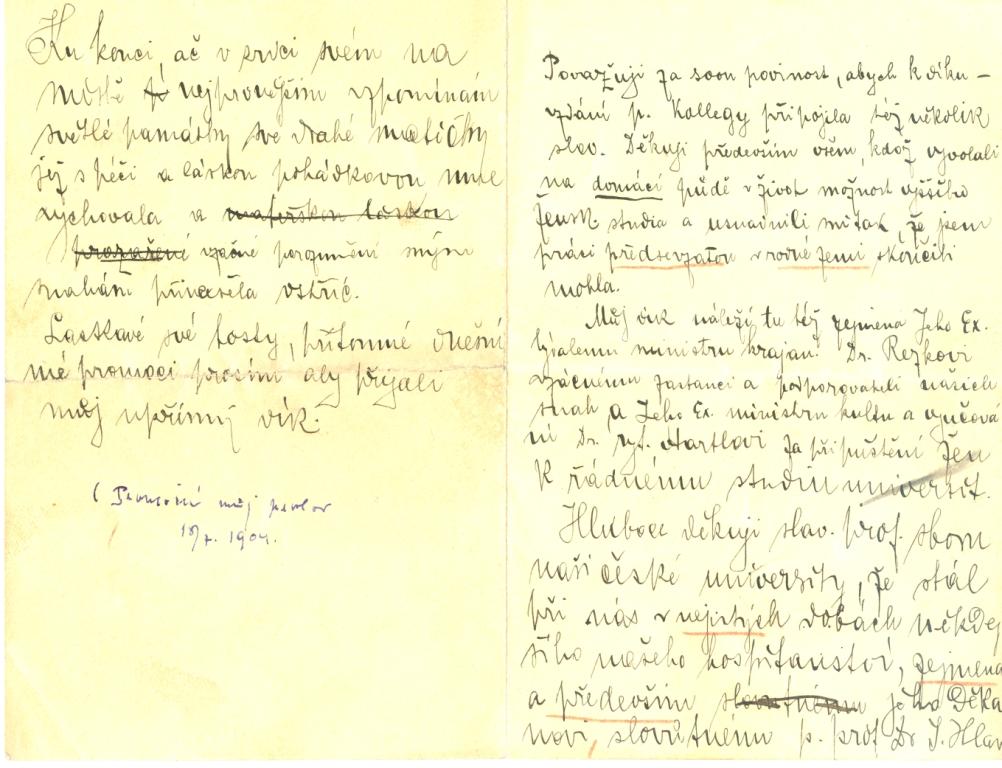 Ku konci, ač v srdci svém na
místě nejprvnějším vzpomínám
světlé památky své drahé matičky
jež s péčí a láskou pohádkovou mne
vychovala a mateřskou láskou
vzácné porozumění mým
snahám přinášela vstříc.
Laskavé své hosty, přítomné dnešní
mé promoci prosím aby přijali
můj upřímný dík.
( Promoční můj proslov
1904.
Považuji za svou povinost, abych k díku–
vzdání p. Kollegy připojila též několik
slov. Děkuji především všem, kdož vyvolali
na domácí půdě v život možnost vyššího
žensk. studia a usnadnili mi tak, že jsem
práci předsevzatou v rodné zemi skončiti
mohla.
Můj dík náleží tu též zejmena Jeho Ex.
ministru krajanu Dr. Rezkovi
vzácnému zastanci a podporovateli našich
snah a Jeho Ex. ministru kultu a vyučová
ní Dr. ryt. Hartlovi za připuštění žen
k řádnému studiu universit.
Hluboce děkuji slav. prof. sboru
naší české university, že stál
při nás v nejistých dobách někdej
šího našeho hospitantství, zejmena
a především slovutnému jeho Děka
novi, slovutnému p. prof Dr I. Hlav